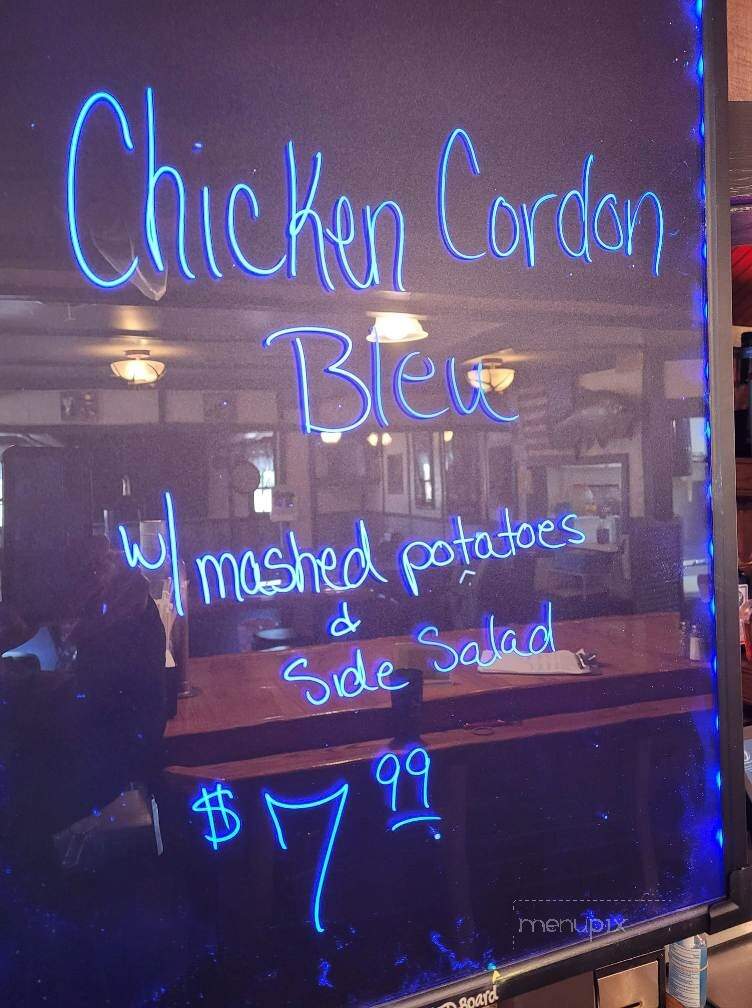 Chicken Cordon
Bleu
w/ mashed potatoes
&
Side Salad
$7.99
menupix
Board